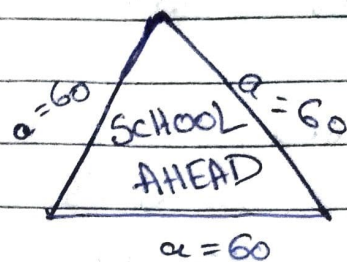 a = 60
a = 60
SCHOOL
AHEAD
a = 60